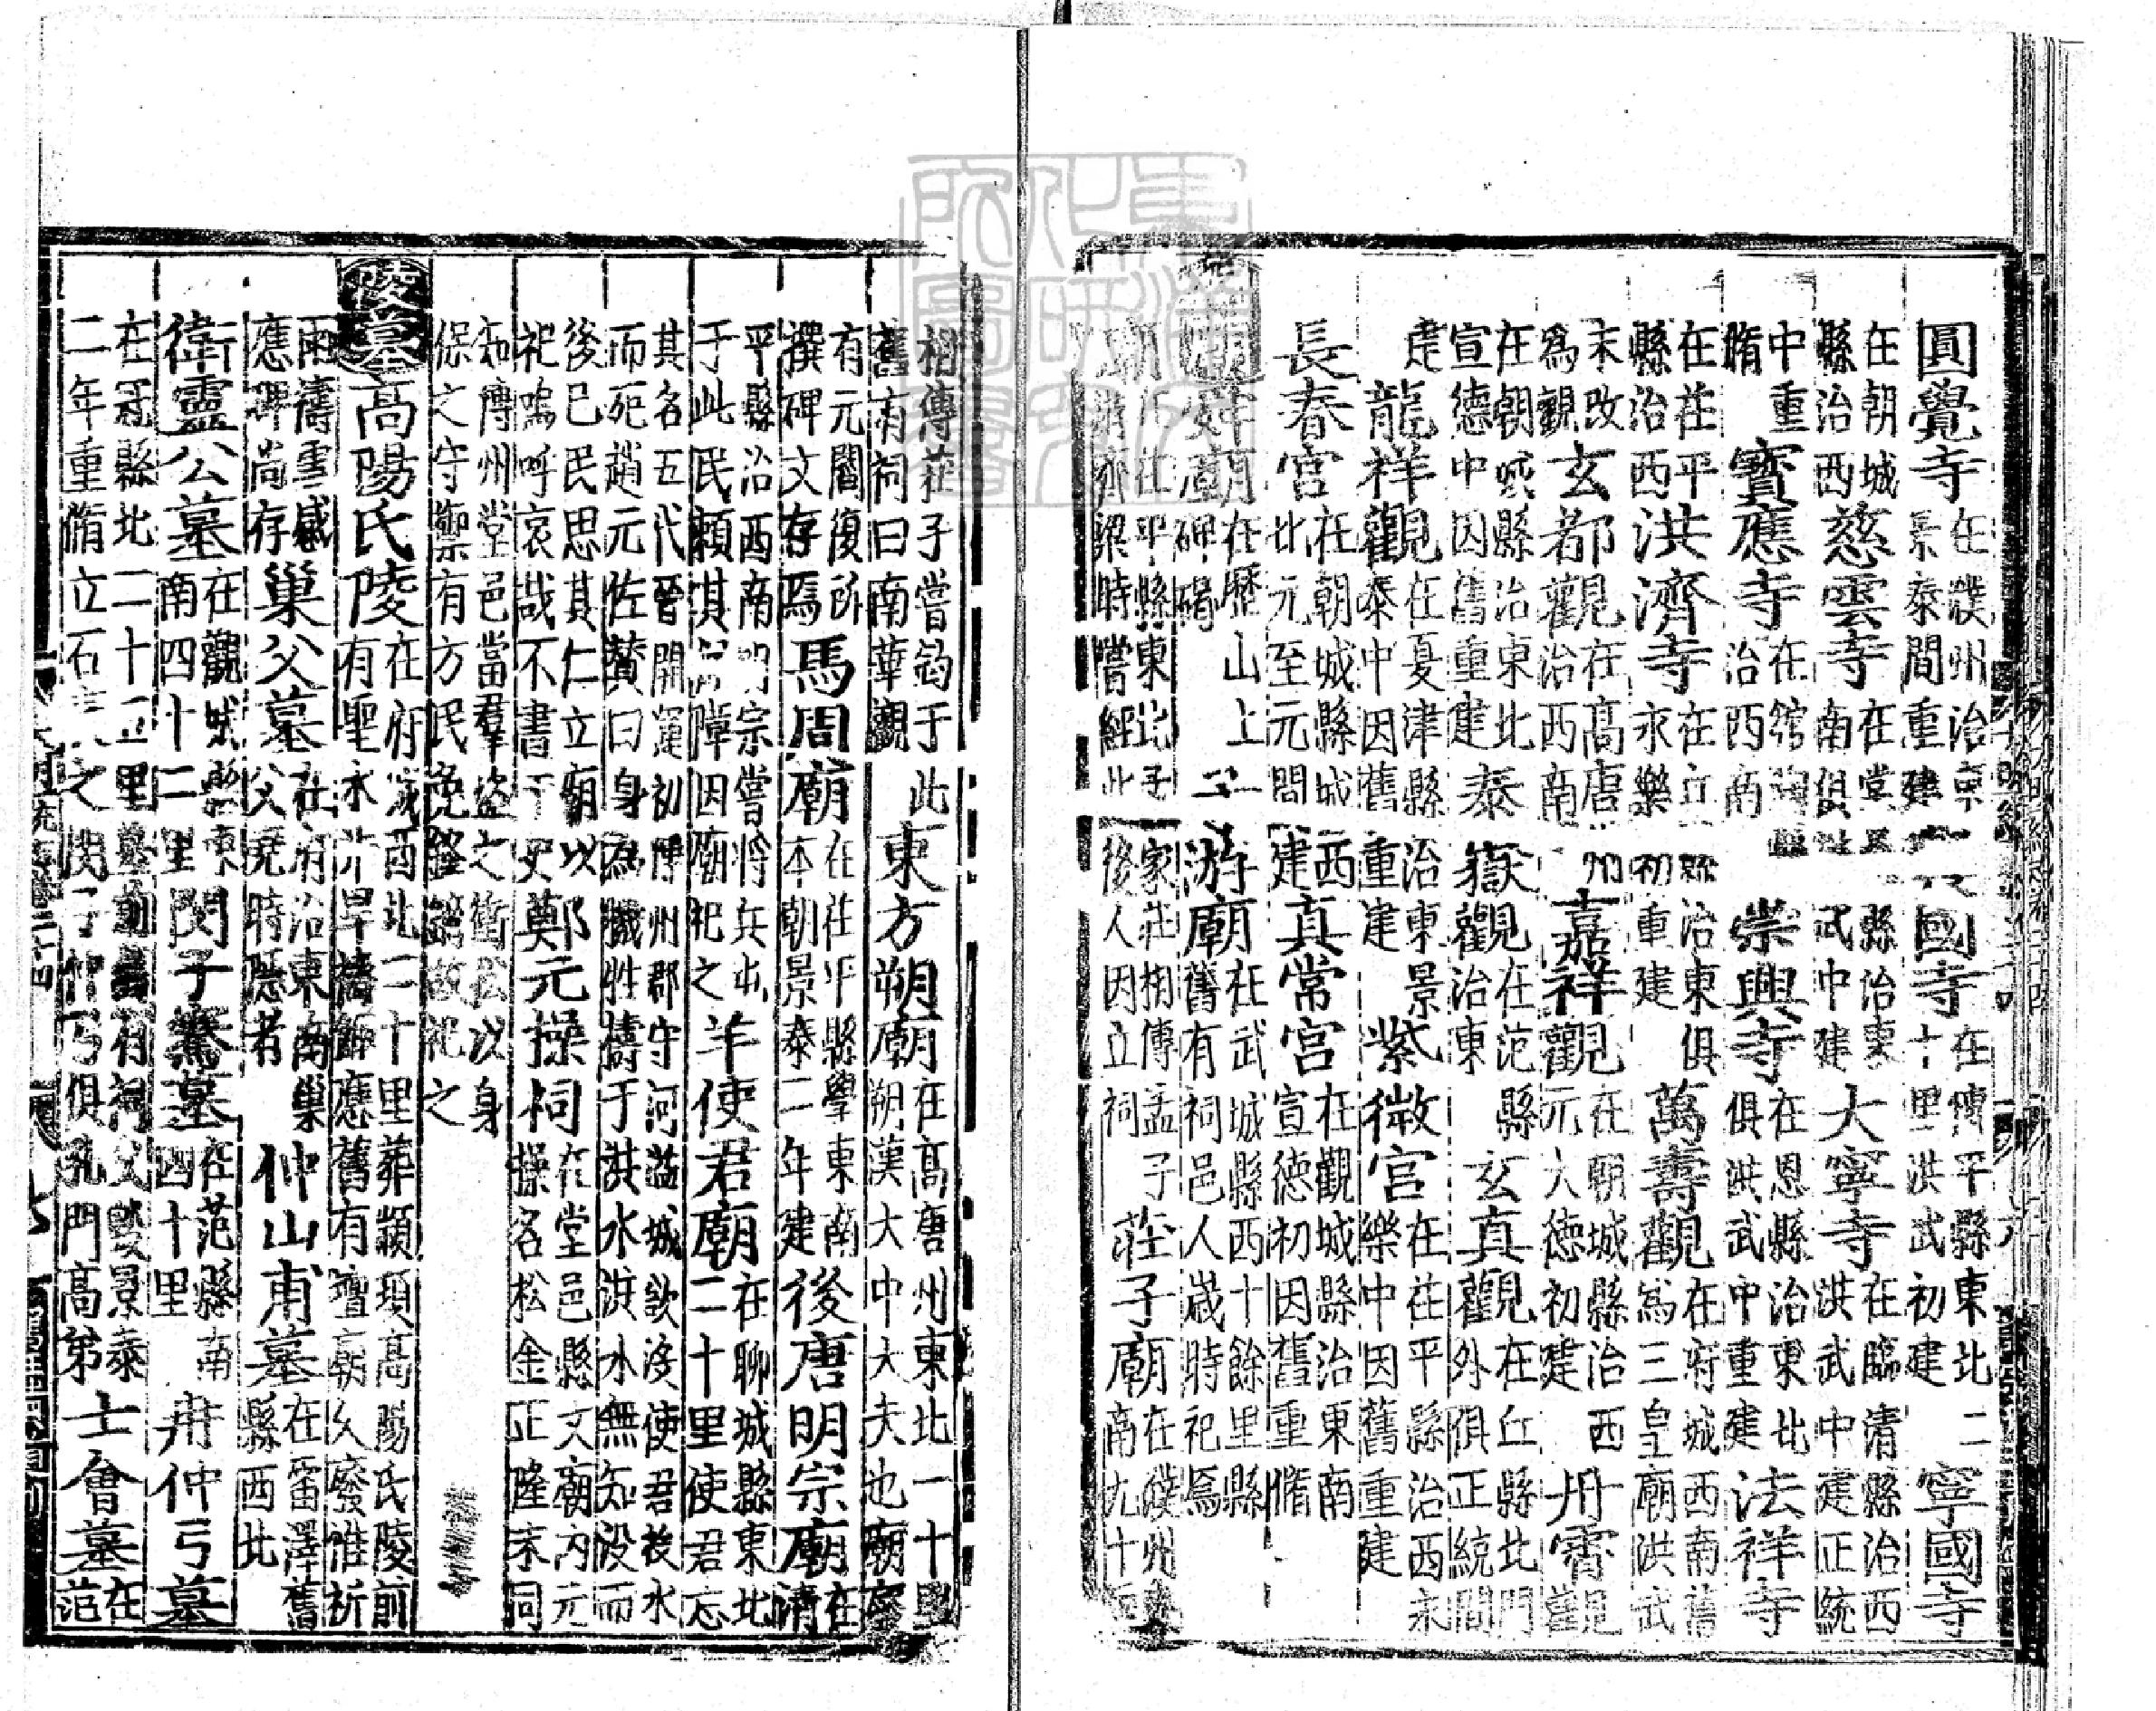 圓覺寺在濮州治東景泰間重建國寺在博平縣東北二十里洪武初建寧國寺
在朝城縣治西慈雲寺在堂邑縣治東南俱洪武中建大寧寺在臨清縣治西洪武中建正統
中重脩寶應寺在館陶縣治西南崇興寺在恩縣治東北俱洪武中重建法祥寺
在茌平縣治西洪濟寺在丘縣治東俱永樂初重建萬壽觀在府城西南舊為三皇廟洪武
末改為觀玄都觀在高唐州治西南嘉祥觀在朝城縣治西元大德初建丹霄觀
在朝城縣治東北宣德中因舊重建泰嶽觀在范縣治東玄真觀在丘縣北門外俱正統間
建龍祥觀在夏津縣治東景泰中因舊重建紫微宮在茌平縣治西永樂中因舊重建
長春宮在朝城縣城西北元至元間建真常宮在觀城縣治東南宣德初因舊重脩
祠廟舜廟在歷山上碑碣子游廟在武城縣西十餘里縣舊有祠邑人歲時祀焉
廟在茌平縣東北孟家莊相傳孟子游齊梁時嘗經此後人因立祠莊子廟在濮州東南九十里
相傳莊子嘗釣于此舊有祠曰南華觀東方朔廟在高唐州東北一十里朔漢大中大夫也廟
有元閻復所撰碑文存焉馬周廟在茌平縣學東南本朝景泰二年建後唐明宗廟在清
平縣治西南明宗嘗將兵屯于此民賴其保障因廟祀之羊使君廟在聊城縣東北二十里使君忘
其名五代晉開運初博州郡守河溢城欲沒使君投水而死趙元佐贊曰身為犧牲禱于洪水洪水無知沒而
後已民思其仁立廟以祀嗚呼哀哉不書于史鄭元操祠在堂邑縣文廟內元操名松金正隆末同
知博州堂邑當群盜之衝松以身保之守禦有方民免鋒鏑故祀之
陵墓高陽氏陵在府城西北二十里葬顓頊高陽氏陵前有聖水井旱禱輒應舊有壇廟久廢惟祈
雨濤雪感應碑尚存巢父墓在府治東南巢父堯時隱者仲山甫墓在雷澤舊縣西北
衛靈公墓在觀城縣東南四十二里閔子騫墓在范縣南四十里冉仲弓墓
在冠縣北二十五里墓前舊有祠久毀景泰二年重脩立石表之閔子仲弓俱孔門高弟士會墓在范
大明一統志卷二十四